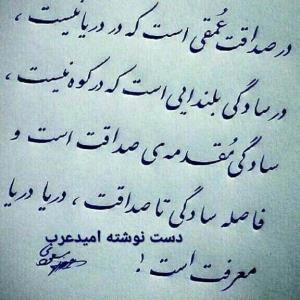 در صداقت عُمقی است که در دریا نیست ،
در سادگی بلندایی است که در کوه نیست ،
سادگی مُقدمه‌ی صداقت است و
فاصله سادگی تا صداقت ، دریا دریا
دست نوشته امیدعرب
معرفت است !